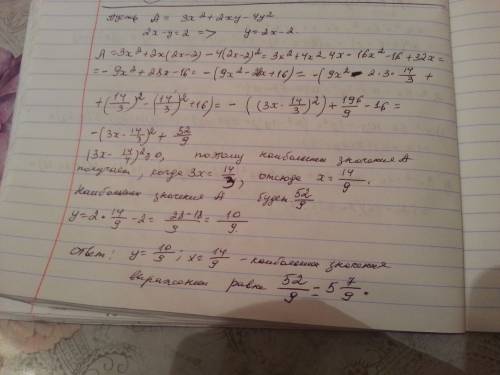 Пусть A = 3x²+2xy-4y²
2x-y=2 => y=2x-2.
A=3x²+2x(2x-2)-4(2x-2)²=3x²+4x²-4x-16x²-16+32x=
=-9x²+28x-16=-(9x²-28x+16)=-(9x²-2·3·14/3+
+(14/3)²-(14/3)²+16)=-((3x-14/3)²)+196/9-16=
-(3x-14/3)²+52/9
(3x-14/3)²≥0, поэтому наибольшее значения A
получаем, когда 3x=14/3, отсюда x=14/9.
Наибольшее значения A будет 52/9
y=2·14/9-2=28-18/9=10/9
Ответ: y=10/9; x=14/9 - наибольшее значения
выражения равна 52/9=5 7/9.